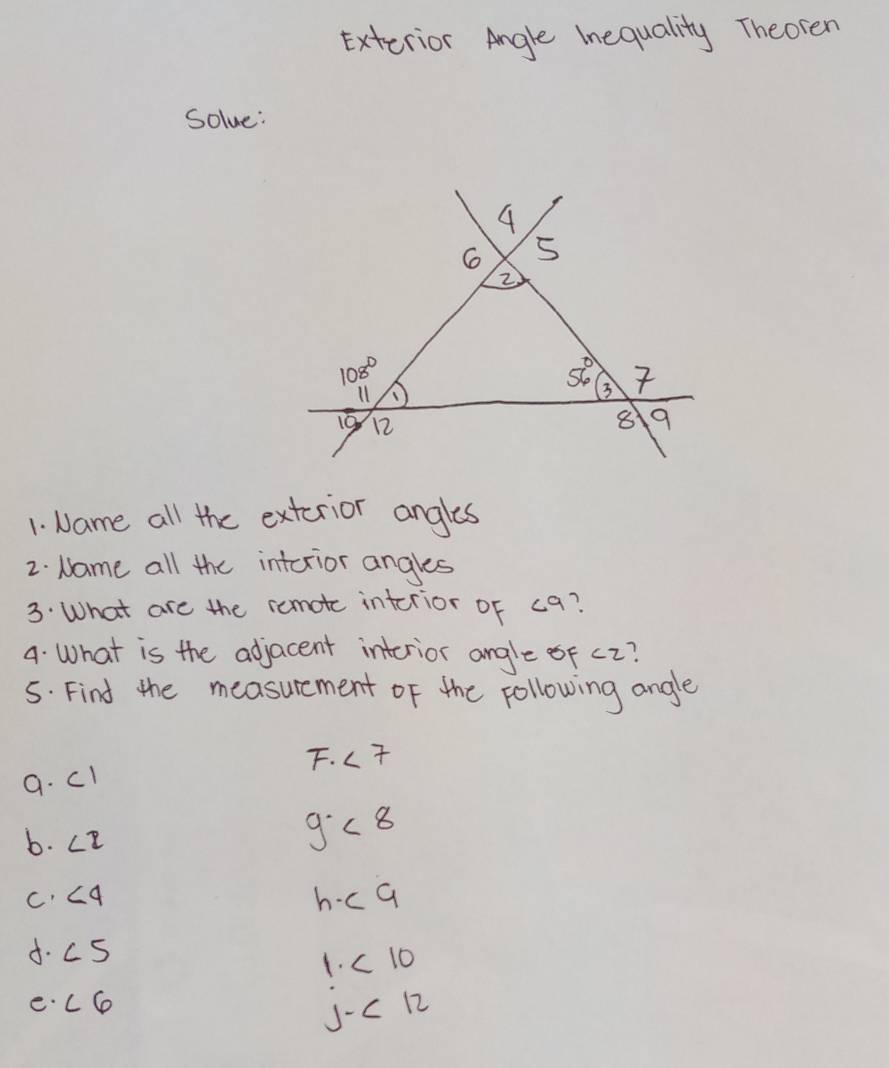 Exterior Angle Inequality Theoren
Solve:
4
6 5
2
108° 56° 7
11 1 3
10 12 8 9
1. Name all the exterior angles
2. Name all the interior angles
3. What are the remote interior of <9?
4. What is the adjacent interior angle of <2?
5. Find the measurement of the following angle
a. <1 F. <7
b. <2 g. <8
c. <4 h. <9
d. <5 i. <10
e. <6 j. <12